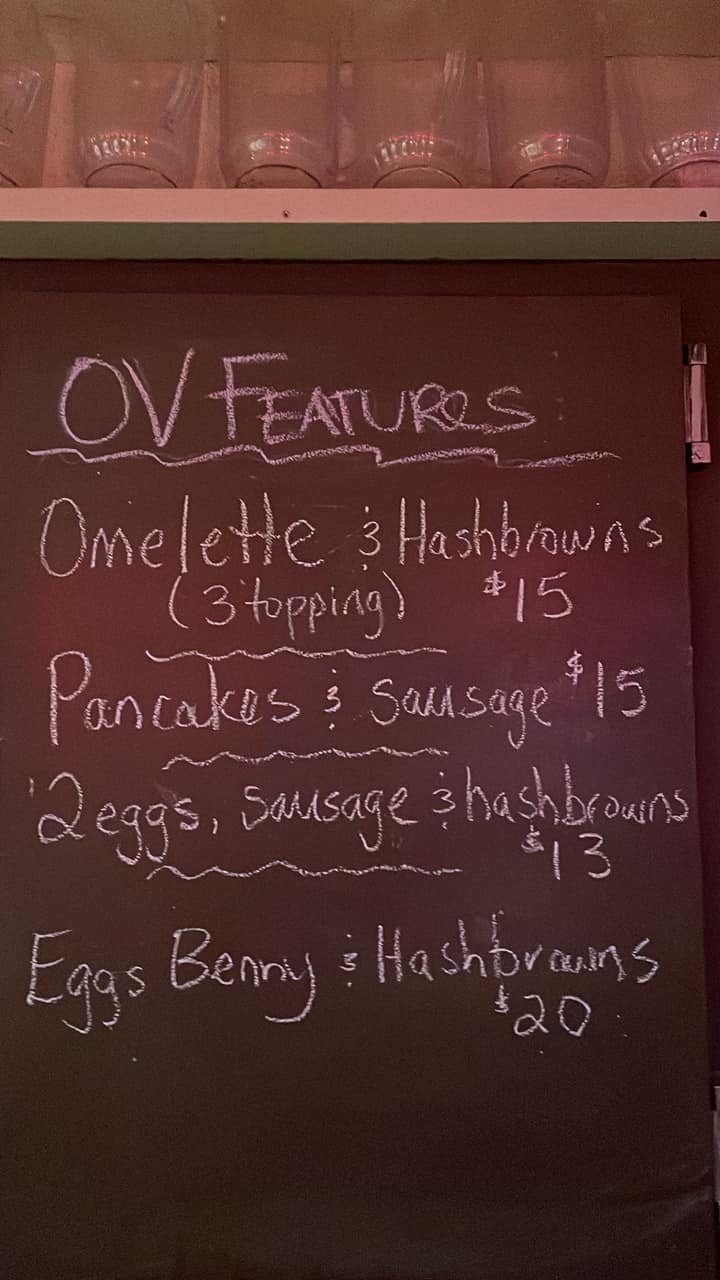 OV FEATURES
Omelette & Hashbrowns
(3 topping) $15
Pancakes & Sausage $15
2 eggs, sausage & hashbrowns
$13
Eggs Benny & Hashbrowns
$20